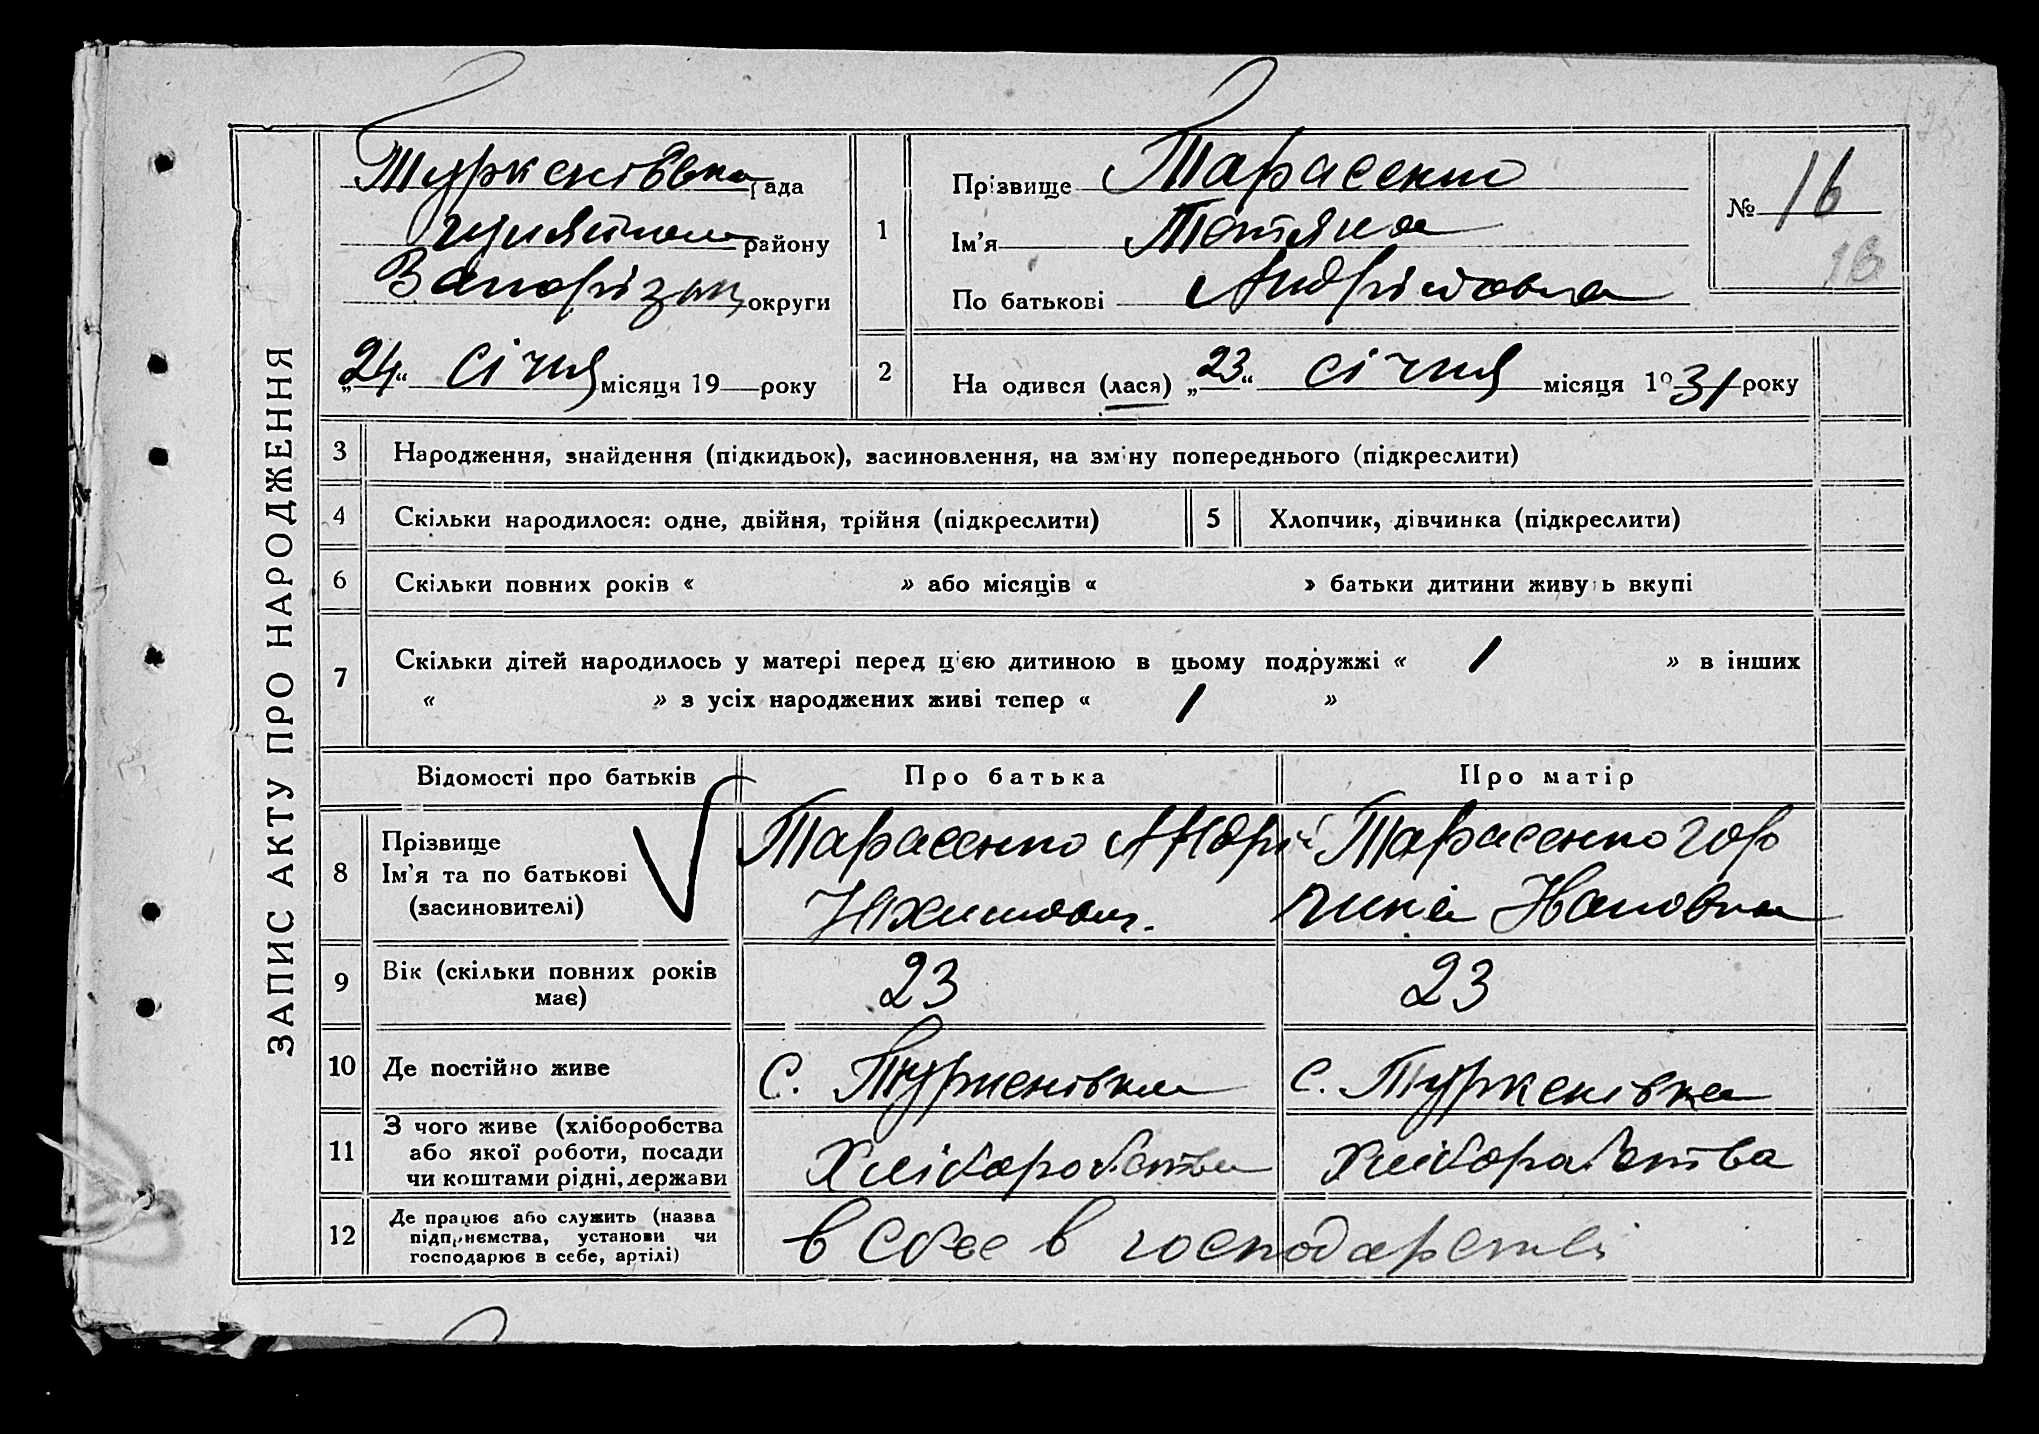 ЗАПИС АКТУ ПРО НАРОДЖЕННЯ
Туркенівська рада
району
округи
„24“ січня місяця 19 року
1
Прізвище Тарасенко
Ім'я Тетяна
По батькові Андріївна
№ 16
16
2
На одився (лася) „23“ січня місяця 1931 року
3 Народження, знайдення (підкидьок), засиновлення, на зміну попереднього (підкреслити)
4 Скільки народилося: одне, двійня, трійня (підкреслити)
5 Хлопчик, дівчинка (підкреслити)
6 Скільки повних років « » або місяців « » батьки дитини живуть вкупі
7 Скільки дітей народилось у матері перед цією дитиною в цьому подружжі « 1 » в інших
« » з усіх народжених живі тепер « 1 »
Відомості про батьків Про батька Про матір
8 Прізвище
Ім'я та по батькові
(засиновителі)
Тарасенко Андрій
Тарасенко Гор
пина
9 Вік (скільки повних років
має)
23
23
10 Де постійно живе
с. Туркенівка
с. Туркенівка
11 З чого живе (хліборобства
або якої роботи, посади
чи коштами рідні, держави
Хліборобства
Хліборобства
12 Де працює або служить (назва
підприємства, установи чи
господарює в себе, артілі)
в себе в господарстві